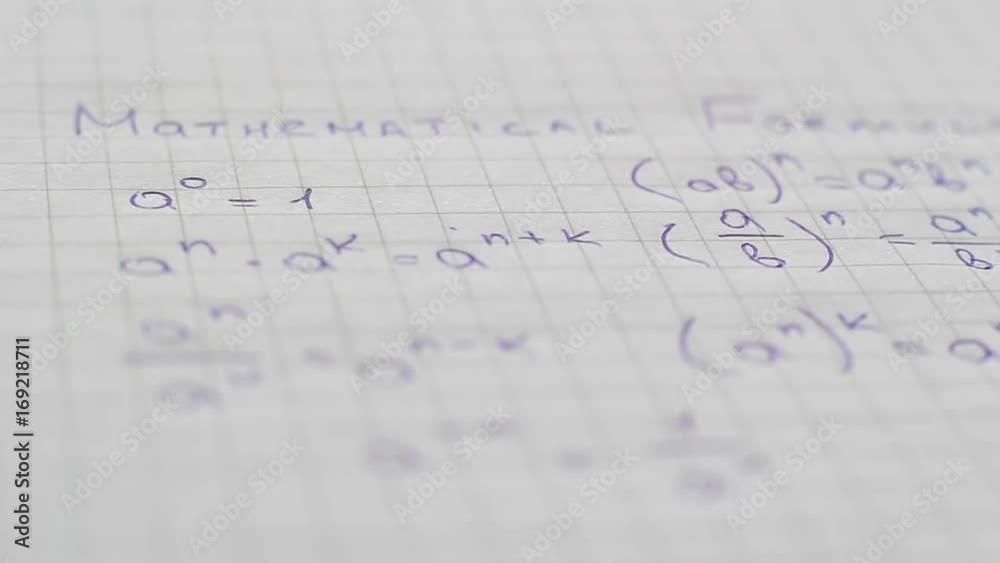 Mathematical
a⁰ = 1
aⁿ · aᵏ = aⁿ⁺ᵏ
aⁿ⁻ᵏ
(aв)ⁿ = aⁿвⁿ
(a/в)ⁿ = aⁿ/в
(aⁿ)ᵏ = a
Adobe Stock | #169218711